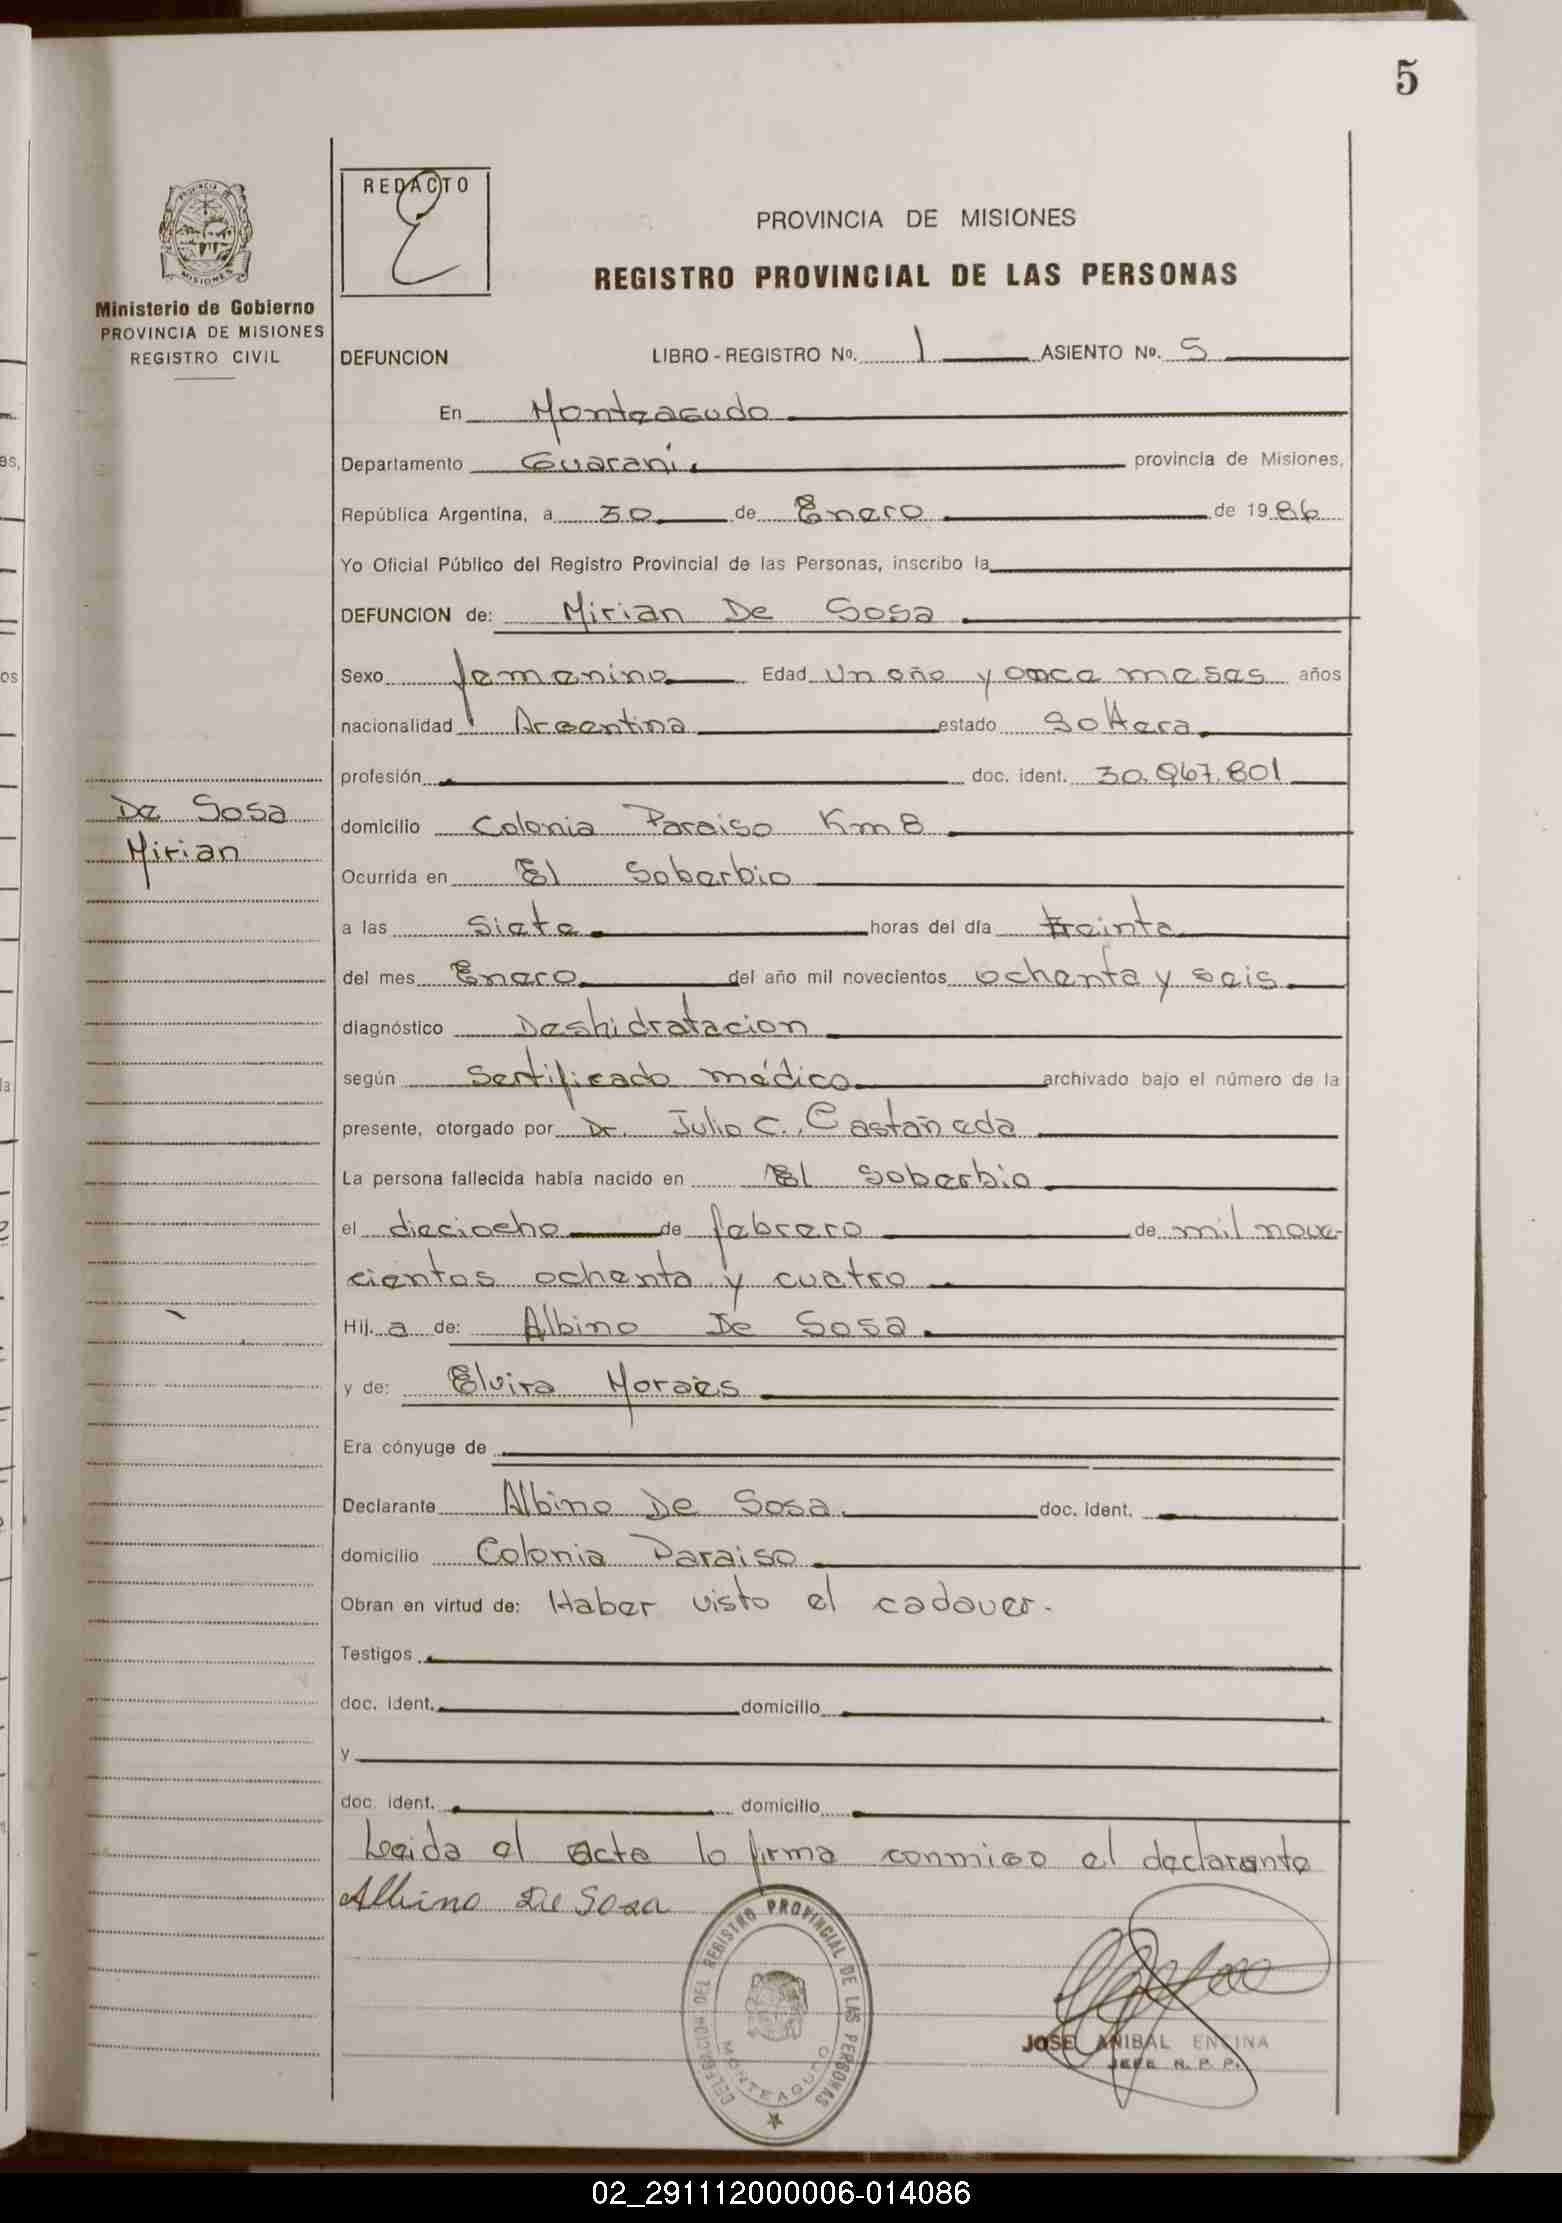 5
REDACTO
PROVINCIA DE MISIONES
REGISTRO PROVINCIAL DE LAS PERSONAS
Ministerio de Gobierno
PROVINCIA DE MISIONES
REGISTRO CIVIL
DEFUNCION LIBRO-REGISTRO No. 1 ASIENTO No. 5
En Monteagudo
Departamento Guaraní provincia de Misiones,
República Argentina, a 30 de Enero de 1986
Yo Oficial Público del Registro Provincial de las Personas, inscribo la
DEFUNCION de: Mirian De Sosa
Sexo femenino Edad Un año y once meses años
nacionalidad Argentina estado Soltera
profesión doc. ident. 30.967.801
De Sosa
Mirian
domicilio Colonia Paraiso Km 8
Ocurrida en El Soberbio
a las Siete horas del día treinta
del mes Enero del año mil novecientos ochenta y seis
diagnóstico Deshidratacion
según Sertificado médico archivado bajo el número de la
presente, otorgado por Dr. Julio C. Castañeda
La persona fallecida había nacido en El Soberbio
el dieciocho de febrero de mil nove-
cientos ochenta y cuatro
Hij a de: Albino De Sosa
y de: Elvira Moraes
Era cónyuge de
Declarante Albino De Sosa doc. ident.
domicilio Colonia Paraiso
Obran en virtud de: Haber visto el cadaver.
Testigos
doc. ident. domicilio
y
doc. ident. domicilio
Leida el acta lo firma conmigo el declarante
Albino De Sosa
DELEGACION DEL REGISTRO PROVINCIAL DE LAS PERSONAS
MONTEAGUDO
JOSE ANIBAL ENCINA
JEFE R. P. P.
02_291112000006-014086